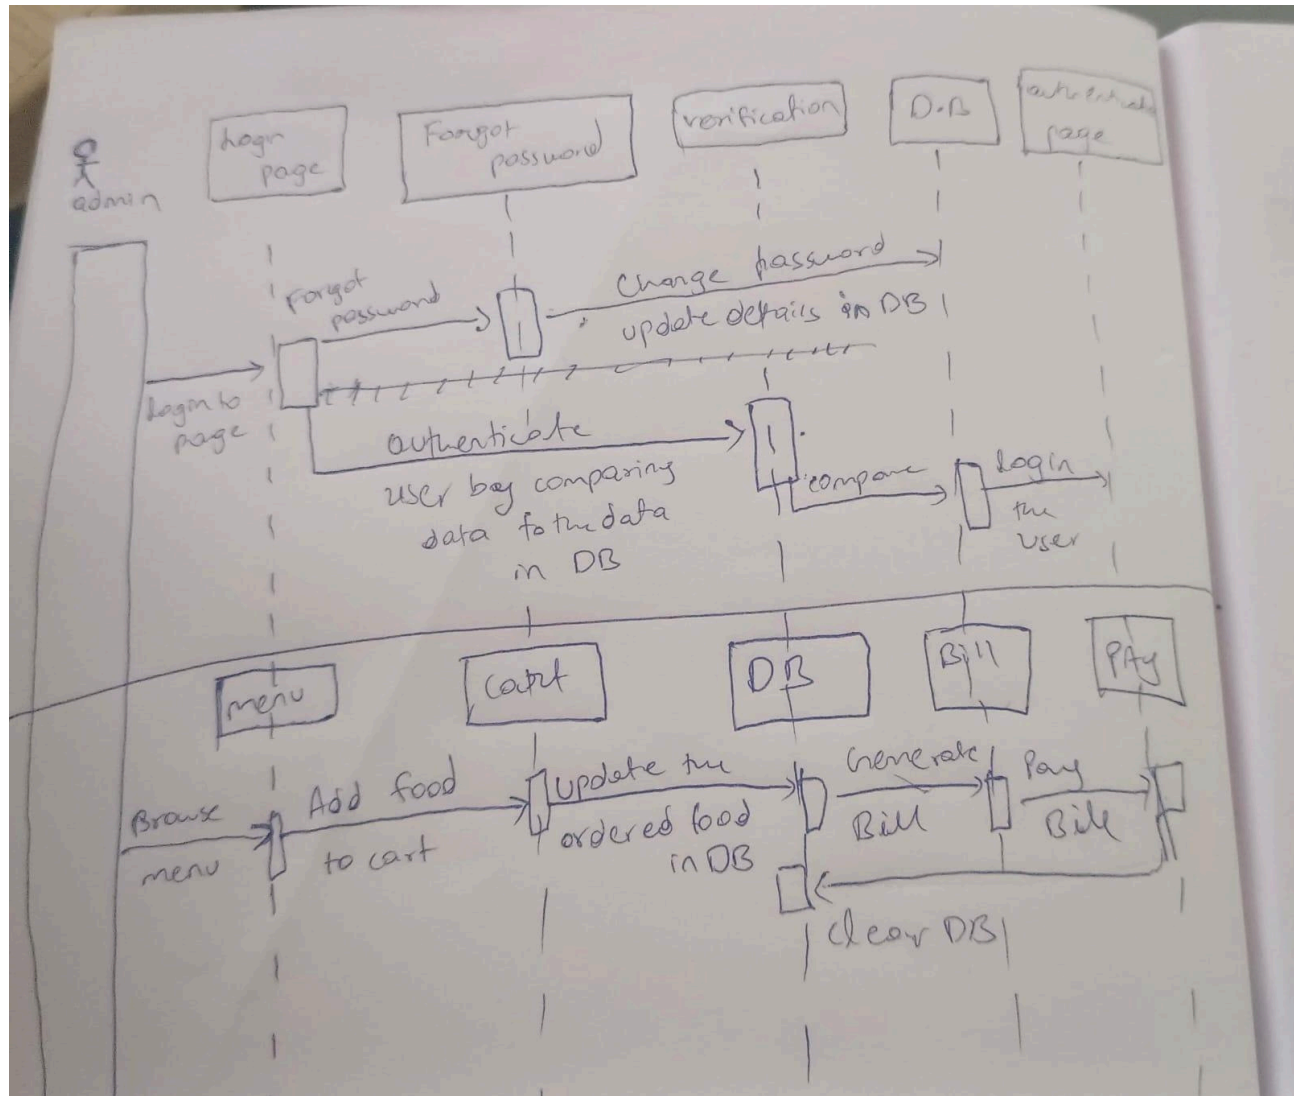 admin
Login
page
Forgot
password
verification
D.B
page
Forgot
password
Change password
update details in DB
Login to
page
authenticate
user boy comparing
data to the data
in DB
compare
Login
the
user
menu
Cart
DB
Bill
PAy
Browse
menu
Add food
to cart
update the
ordered food
in DB
Generate
Bill
Pay
Bill
Clear DB